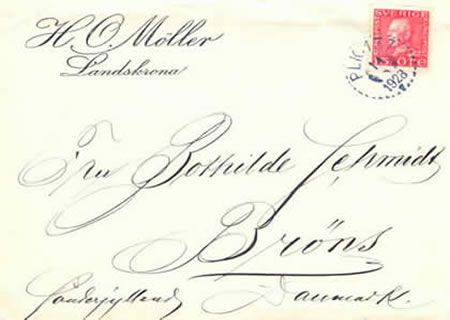 H. O. Möller
Landskrona
SVERIGE
ÖRE
1928
Fru Bothilde Schmidt
Bröns
Sönderjylland
Danmark.